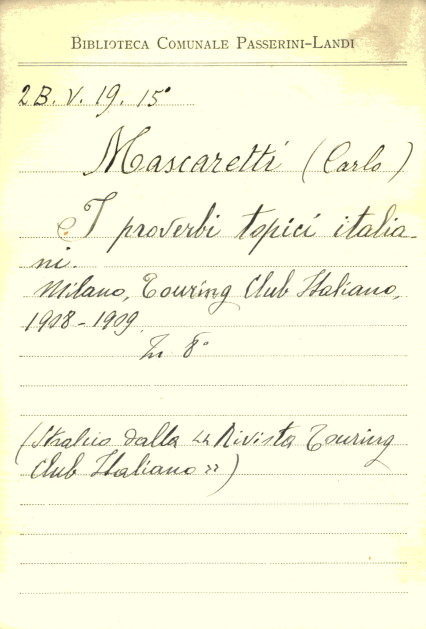 BIBLIOTECA COMUNALE PASSERINI-LANDI
2B. V. 19. 15°
Mascaretti (Carlo)
I proverbi topici italia-
ni.
Milano, Touring Club Italiano,
1908-1909.
In 8°
(Stralcio dalla «Rivista Touring
Club Italiano»)